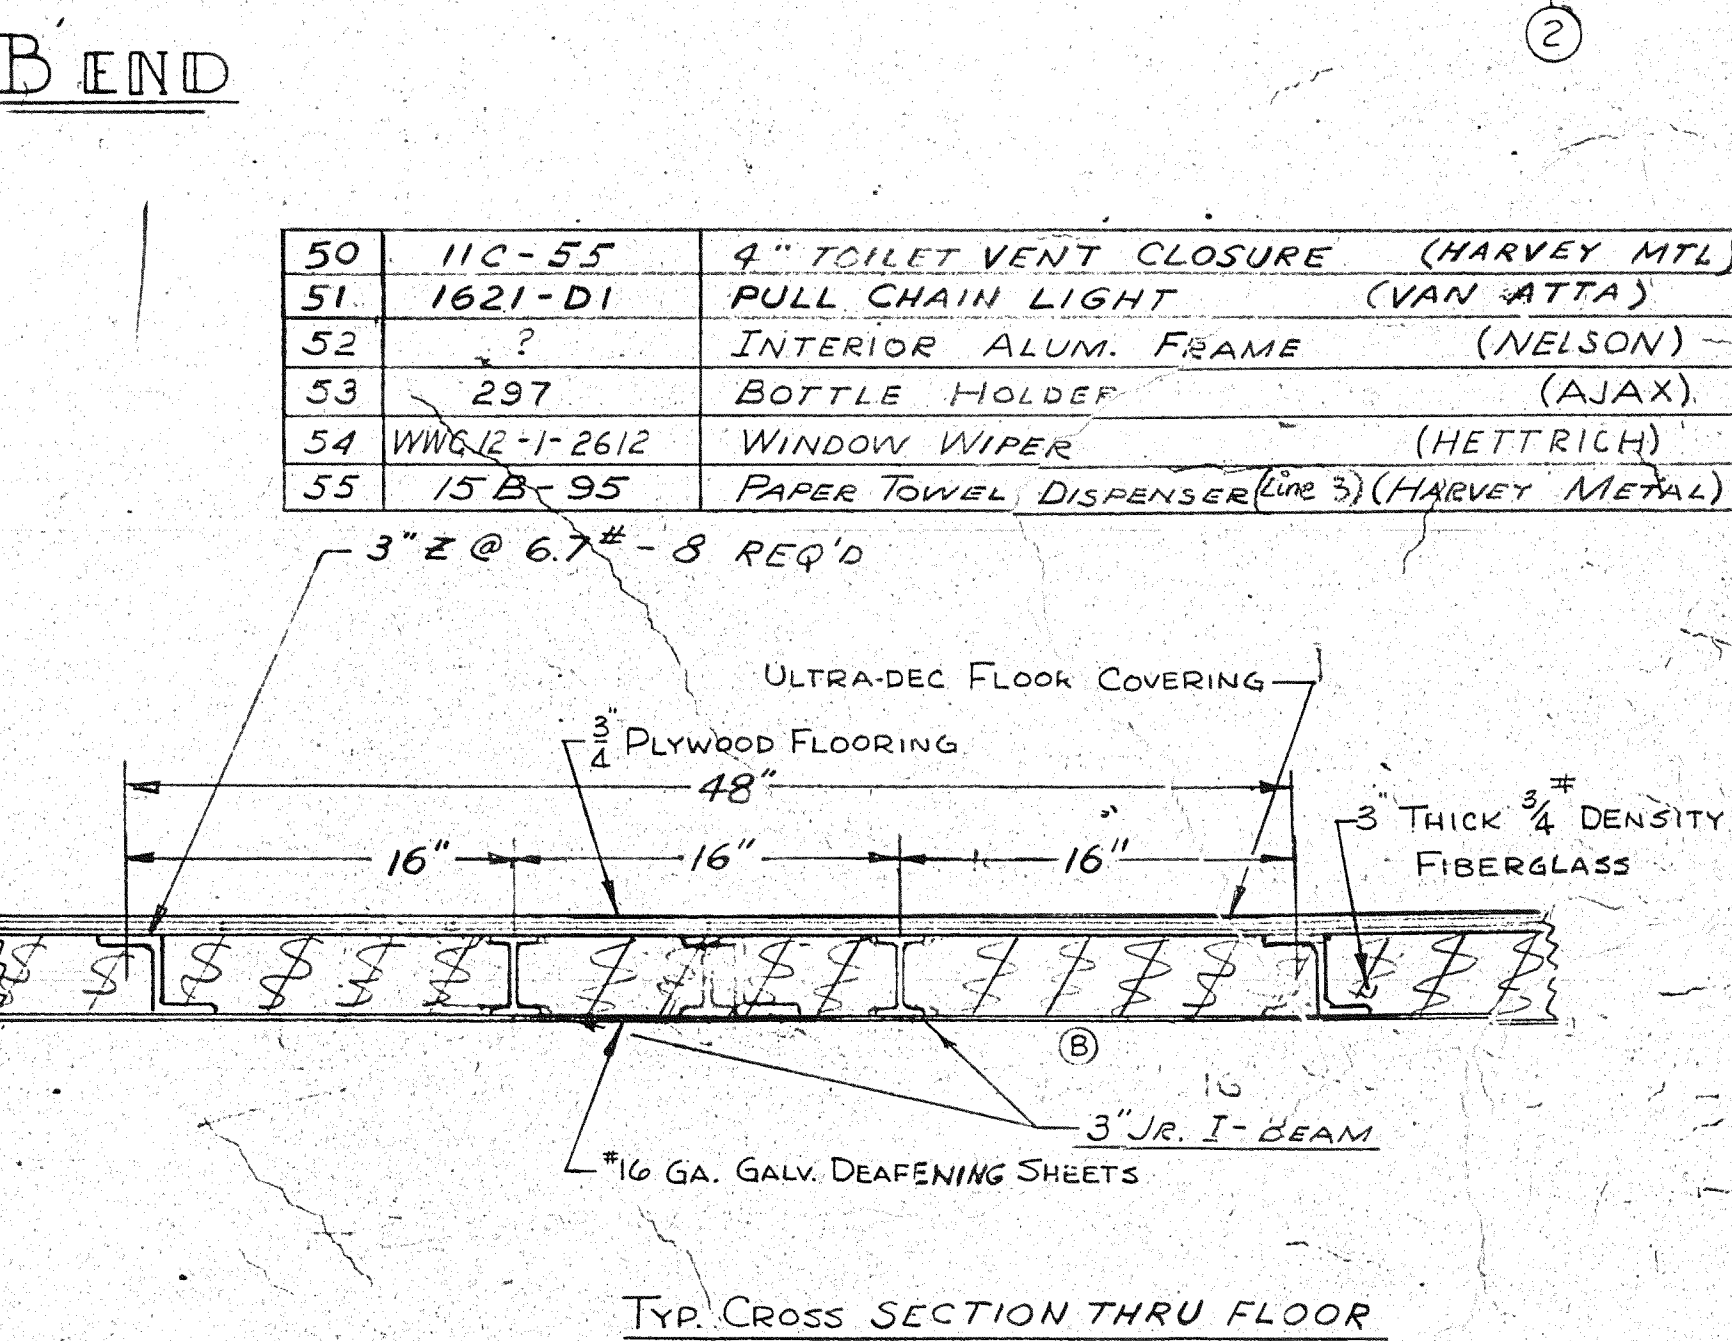 2
B END
50 11C-55 4" TOILET VENT CLOSURE (HARVEY MTL)
51 1621-D1 PULL CHAIN LIGHT (VAN ATTA)
52 ? INTERIOR ALUM. FRAME (NELSON)
53 297 BOTTLE HOLDER (AJAX)
54 WWC12-1-2612 WINDOW WIPER (HETTRICH)
55 15B-95 PAPER TOWEL DISPENSER (Line 3) (HARVEY METAL)
3" Z @ 6.7# - 8 REQ'D
ULTRA-DEC FLOOR COVERING
3/4" PLYWOOD FLOORING
48"
3" THICK 3/4# DENSITY
FIBERGLASS
16" 16" 16"
B
16
3" JR. I-BEAM
#16 GA. GALV. DEAFENING SHEETS
TYP. CROSS SECTION THRU FLOOR